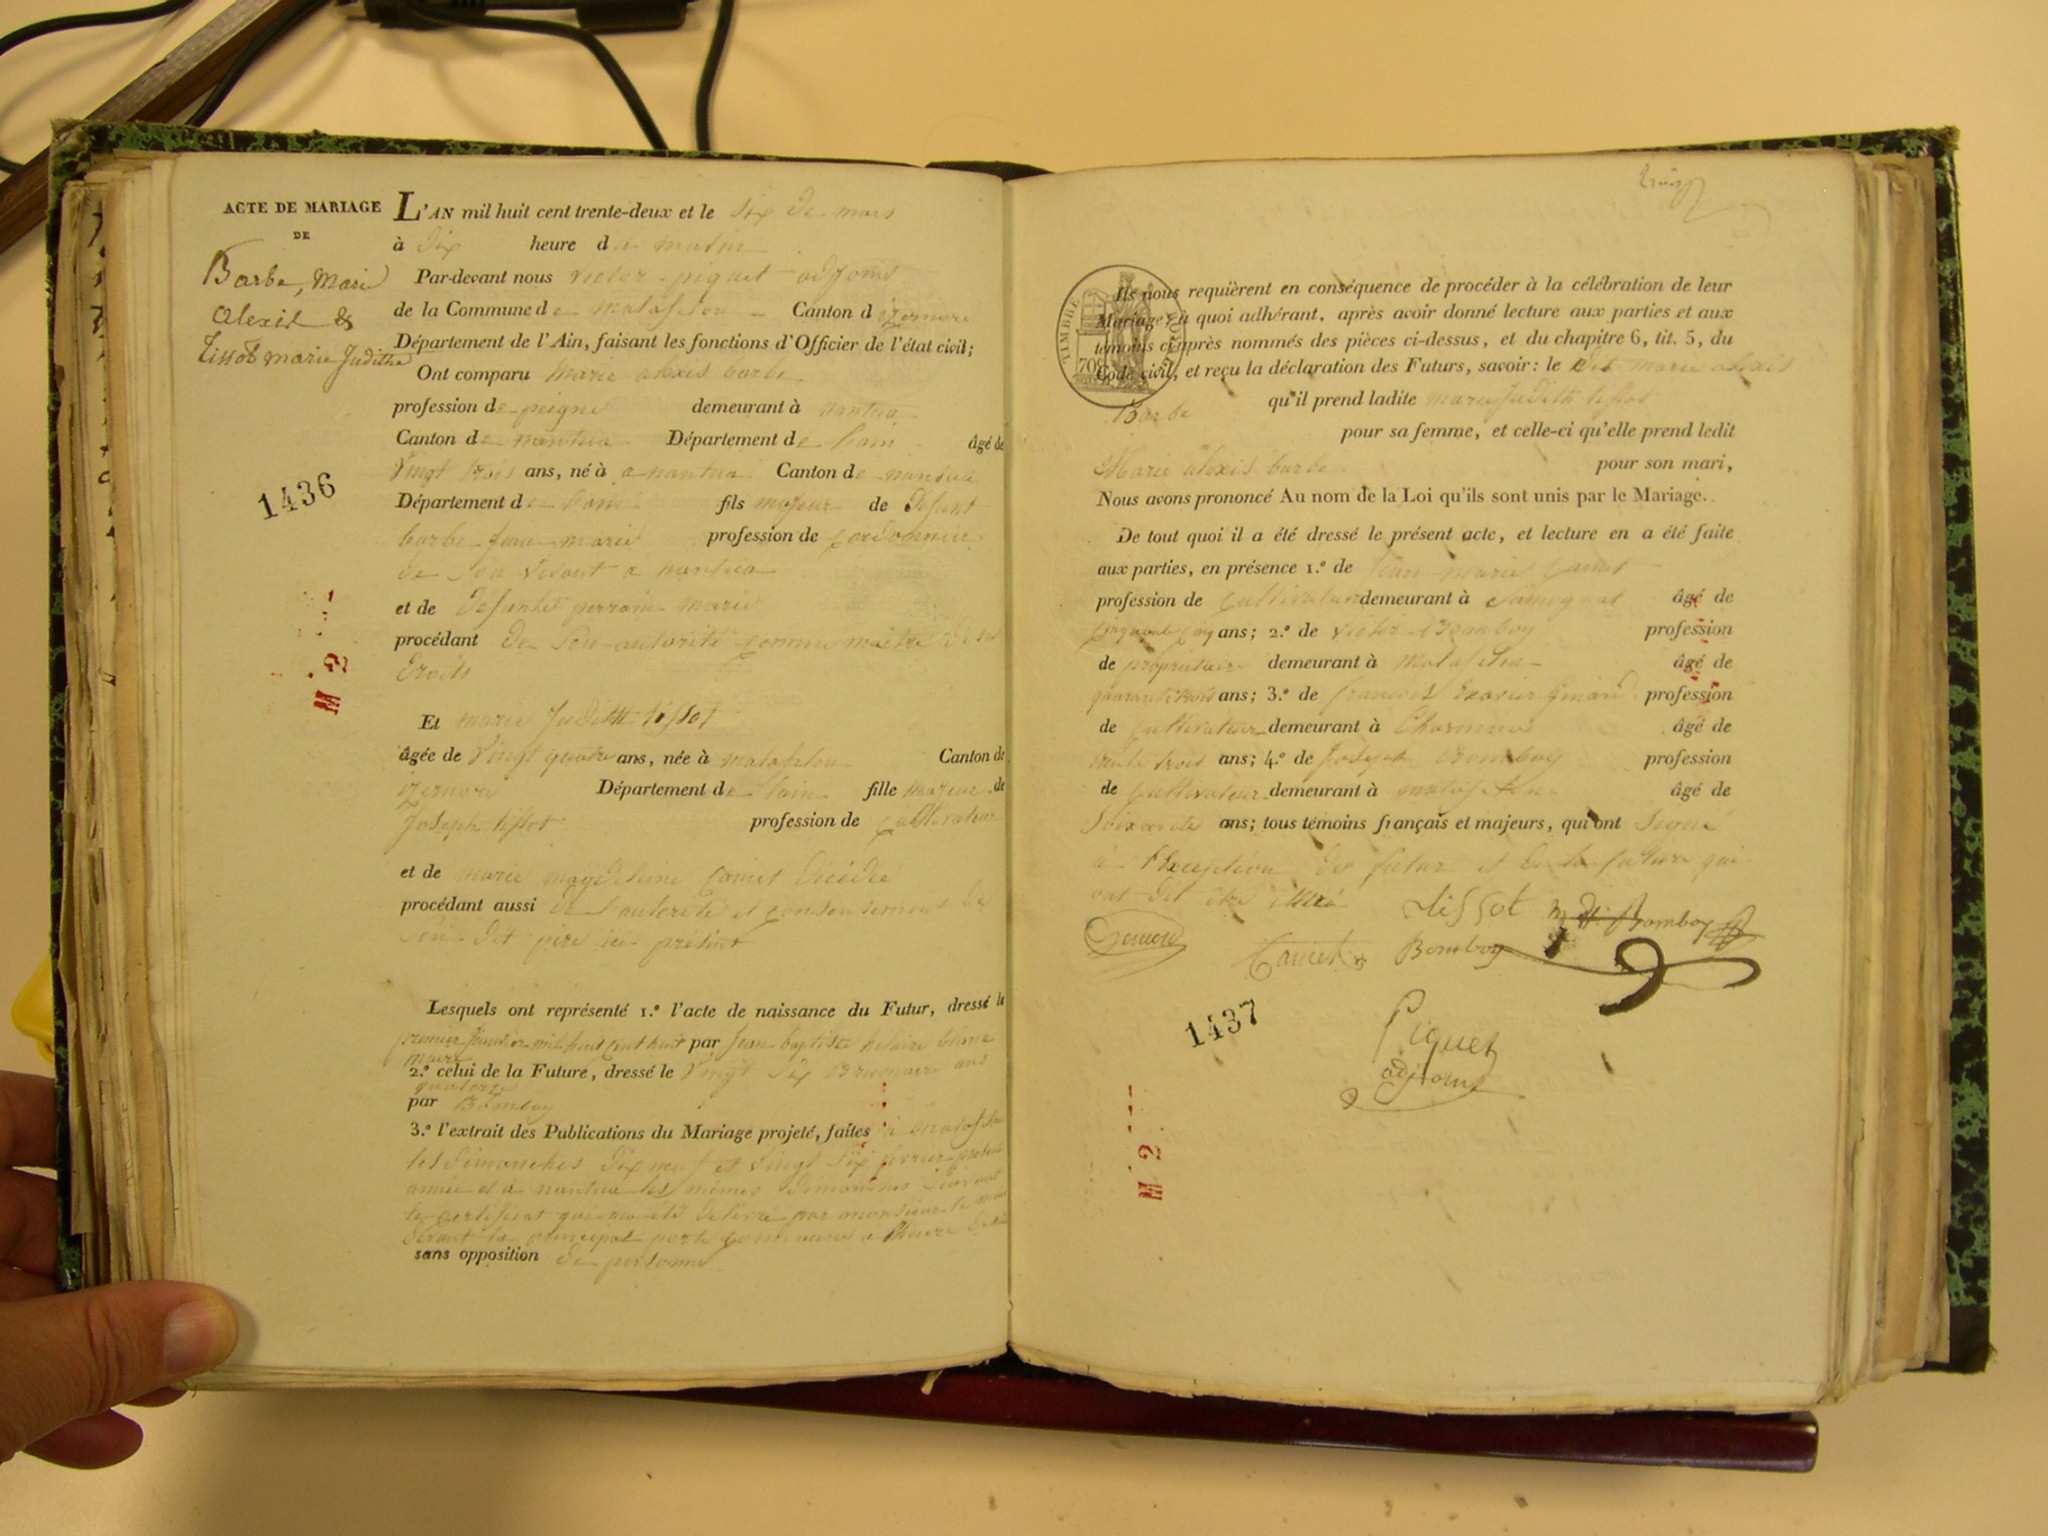 ACTE DE MARIAGE
DE
Barbe, Marie
alexis &
Tissot marie Judithe
1436
M 2
L'AN mil huit cent trente-deux et le six de mars
à dix heure de matin
Par-devant nous victor piquet adjoint
de la Commune de matafelon Canton d'izernore
Département de l'Ain, faisant les fonctions d'Officier de l'état civil;
Ont comparu Marie alexis barbe
profession de peigne demeurant à nantua
Canton de nantua Département de lain âgé de
Vingt trois ans, né à a nantua Canton de nantua
Département de lain fils majeur de Defunt
barbe jean marie profession de cordonnier
de son vivant a nantua
et de Defunte perroine marie
procédant de son autorité comme maitre de ses
droits
Et marie Judith tissot
âgée de Vingt quatre ans, née à matafelon Canton de
izernore Département de lain fille majeur de
Joseph tissot profession de cultivateur
et de marie magdeleine Carrier décédée
procédant aussi de l'autorité et consentement de
son dit père ici présent
Lesquels ont représenté 1.º l'acte de naissance du Futur, dressé le
premier janvier mil huit cent huit par jean baptiste
maire
2.º celui de la Future, dressé le Vingt six Brumaire ans
quatorze
par Bomboy
3.º l'extrait des Publications du Mariage projeté, faites à matafelon
les dimanches dix neuf et vingt six fevrier
année et à nantua les mêmes dimanches suivant
le certificat qui m'a été délivré par monsieur le maire
devant la principal porte
sans opposition de personne
TIMBRE
70
Ils nous requièrent en conséquence de procéder à la célébration de leur
Mariage; à quoi adhérant, après avoir donné lecture aux parties et aux
témoins ci-après nommés des pièces ci-dessus, et du chapitre 6, tit. 5, du
Code civil, et reçu la déclaration des Futurs, savoir: le dit marie alexis
Barbe qu'il prend ladite marie Judith tissot
pour sa femme, et celle-ci qu'elle prend ledit
Marie alexis barbe pour son mari,
Nous avons prononcé Au nom de la Loi qu'ils sont unis par le Mariage.
De tout quoi il a été dressé le présent acte, et lecture en a été faite
aux parties, en présence 1.º de jean marie
profession de cultivateur demeurant à Samognat âgé de
cinquante cinq ans; 2.º de victor Bomboy profession
de propriétaire demeurant à Matafelon âgé de
quarante trois ans; 3.º de francois profession
de cultivateur demeurant à Charmine âgé de
trente trois ans; 4.º de Joseph Bomboy profession
de cultivateur demeurant à matafelon âgé de
Soixante ans; tous témoins français et majeurs, qui ont signé
à l'exception du futur et de la future qui
ont dit être illitéré
tissot Bomboy
Bomboy
1437
Piquet
adjoint
M 2